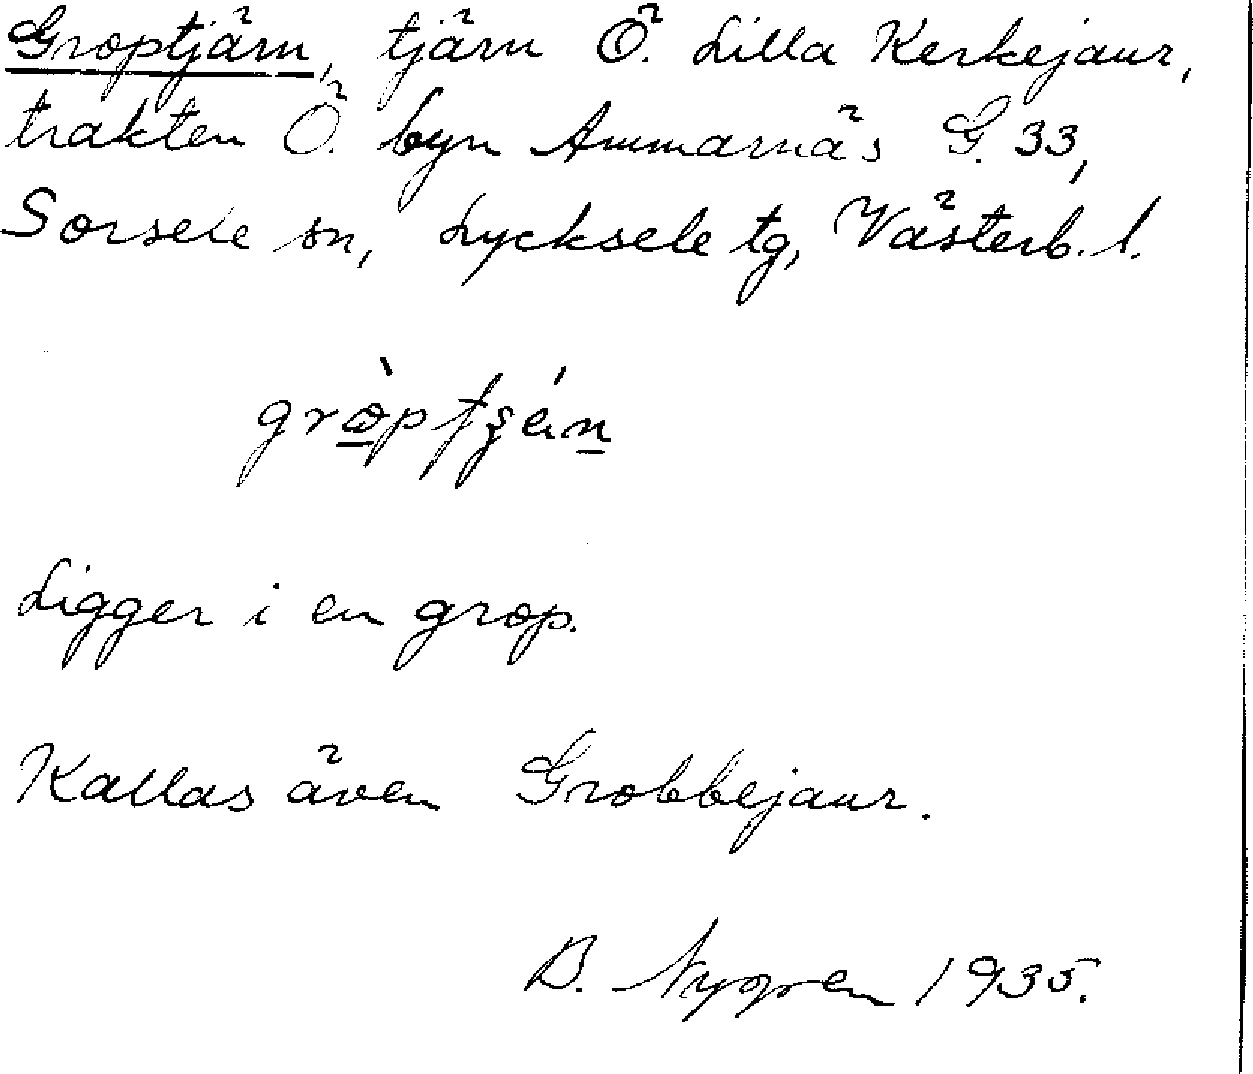 Groptjärn, tjärn Ö. Lilla Kerkejaur,
trakten Ö. byn Ammarnäs G. 33,
Sorsele sn, Lycksele tg, Västerb. l.
Ligger i en grop.
Kallas även Grobbejaur.
B. Nygren 1935.